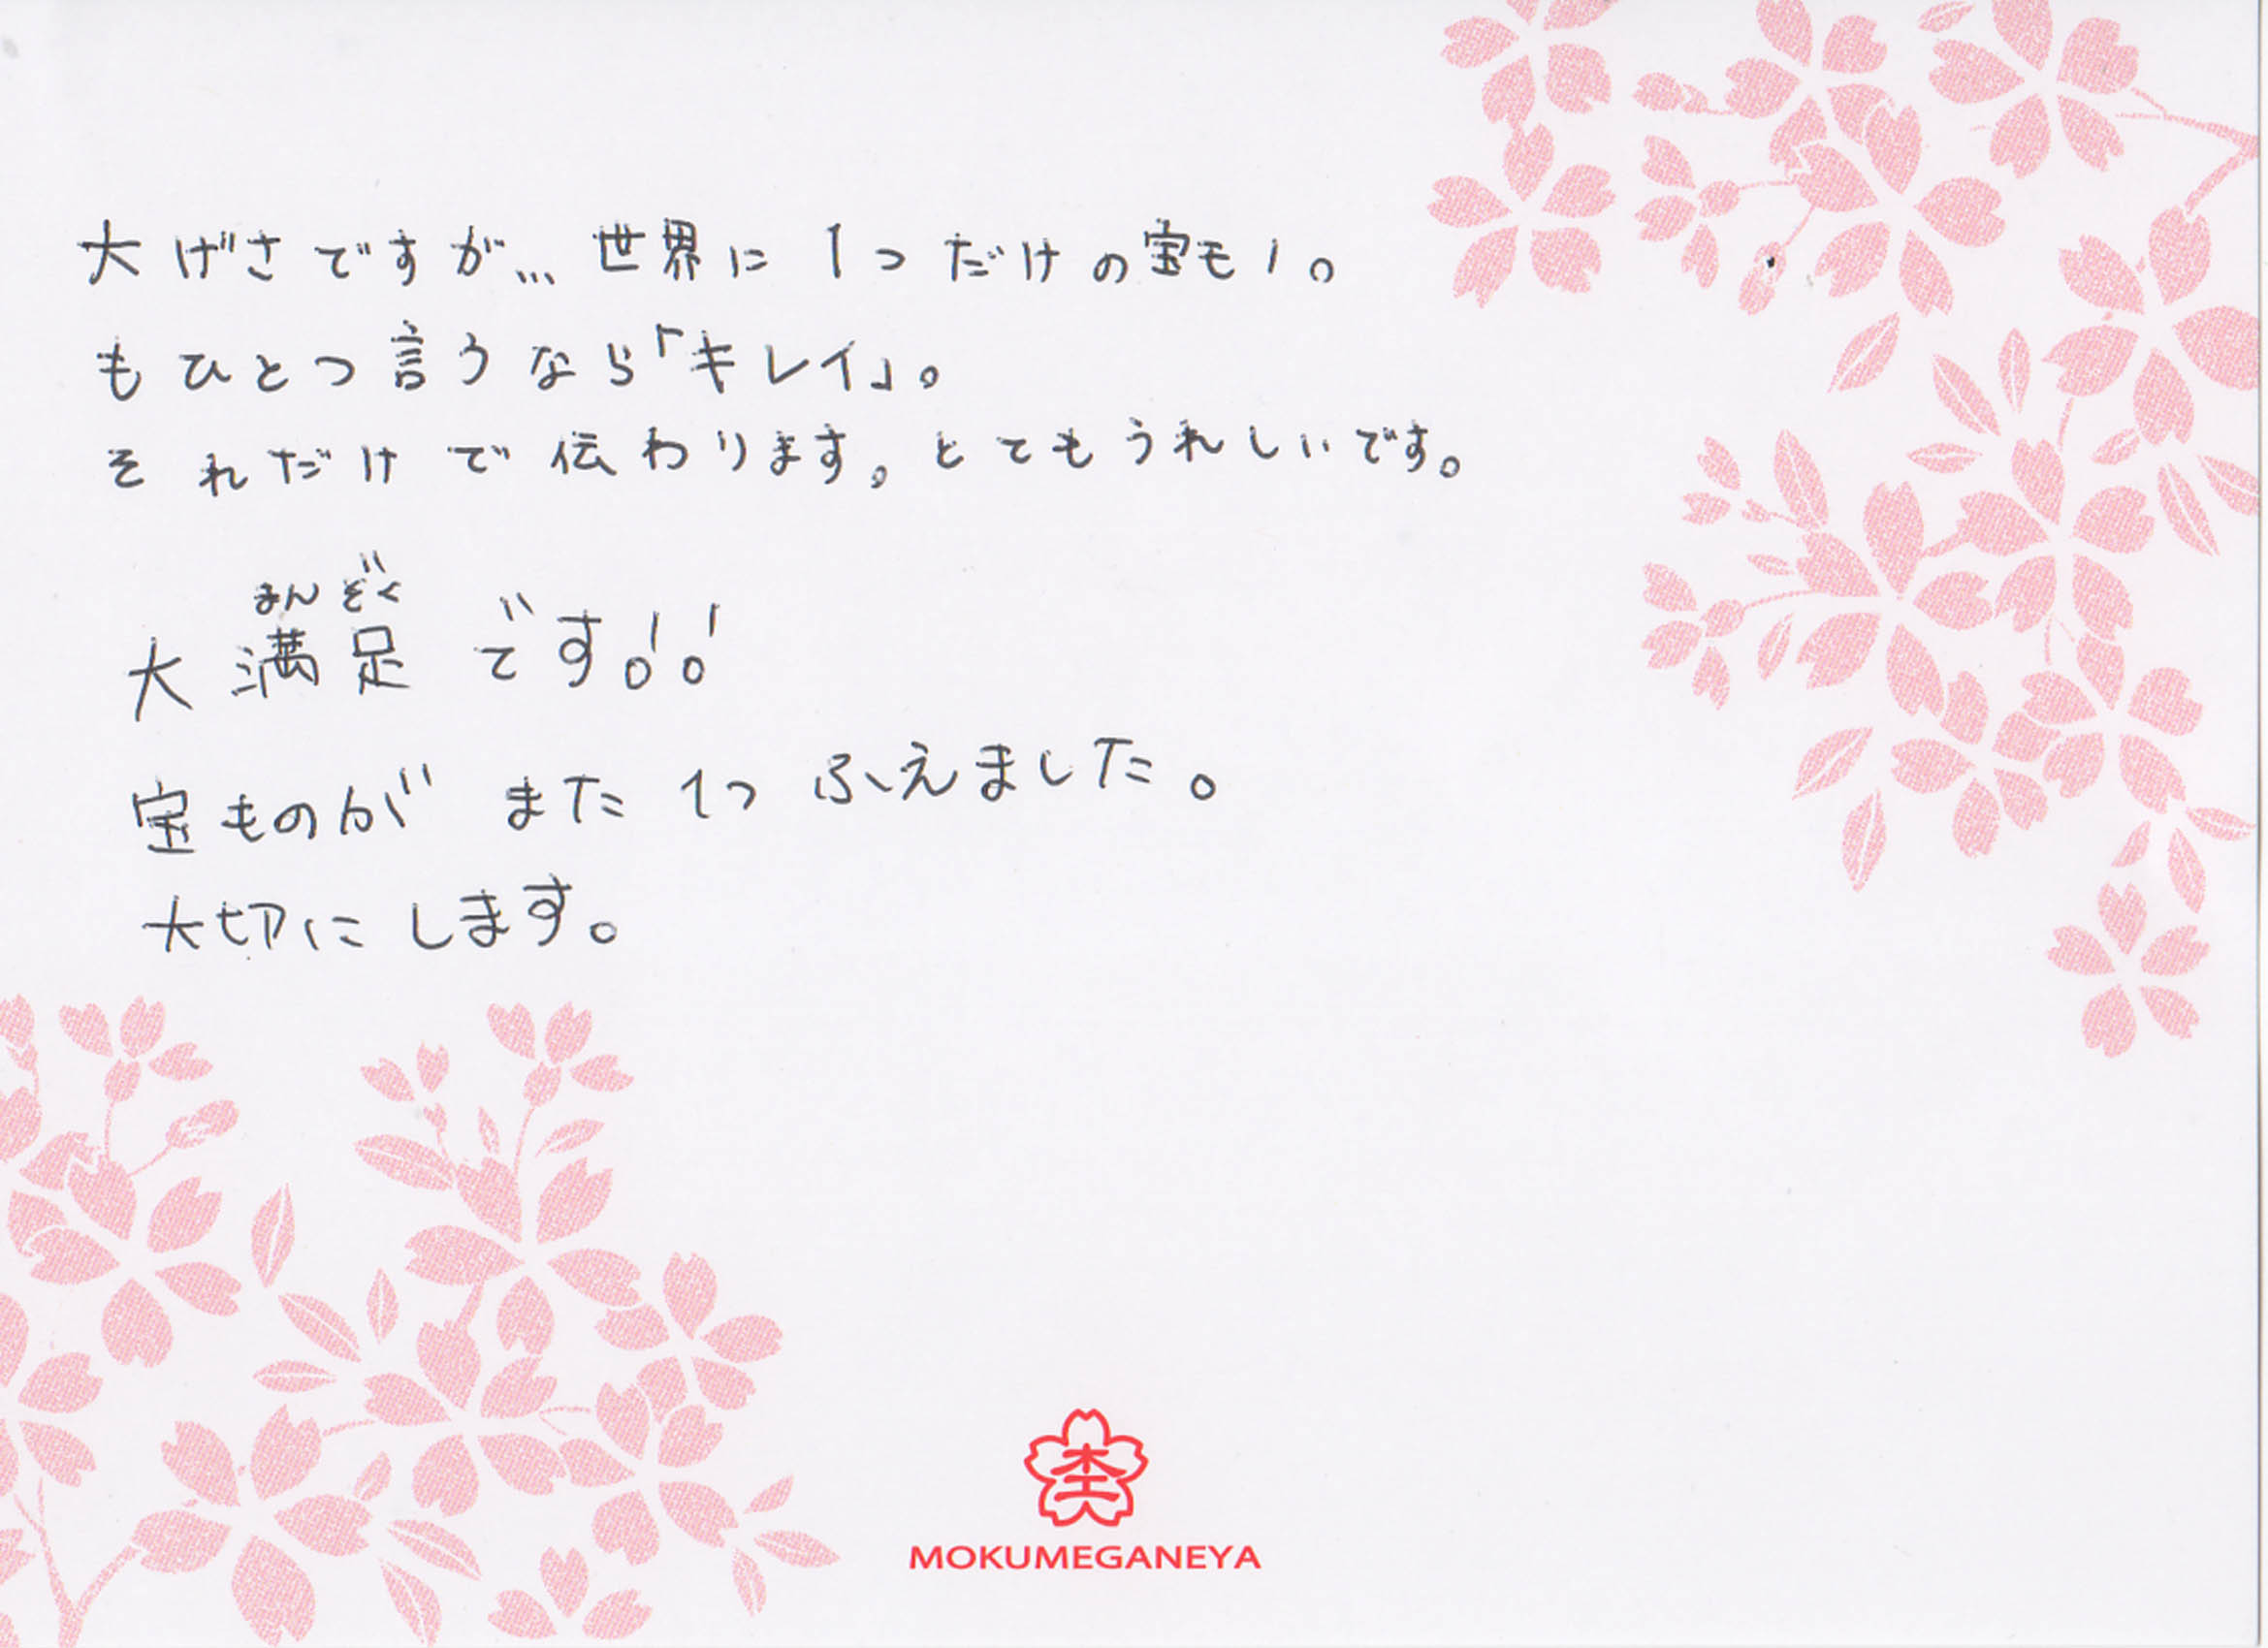 大げさですが… 世界に1つだけの宝モノ。
もひとつ言うなら「キレイ」。
それだけで伝わります。とてもうれしいです。
まんぞく
大満足です!!
宝ものがまた1つふえました。
大切にします。
杢
MOKUMEGANEYA